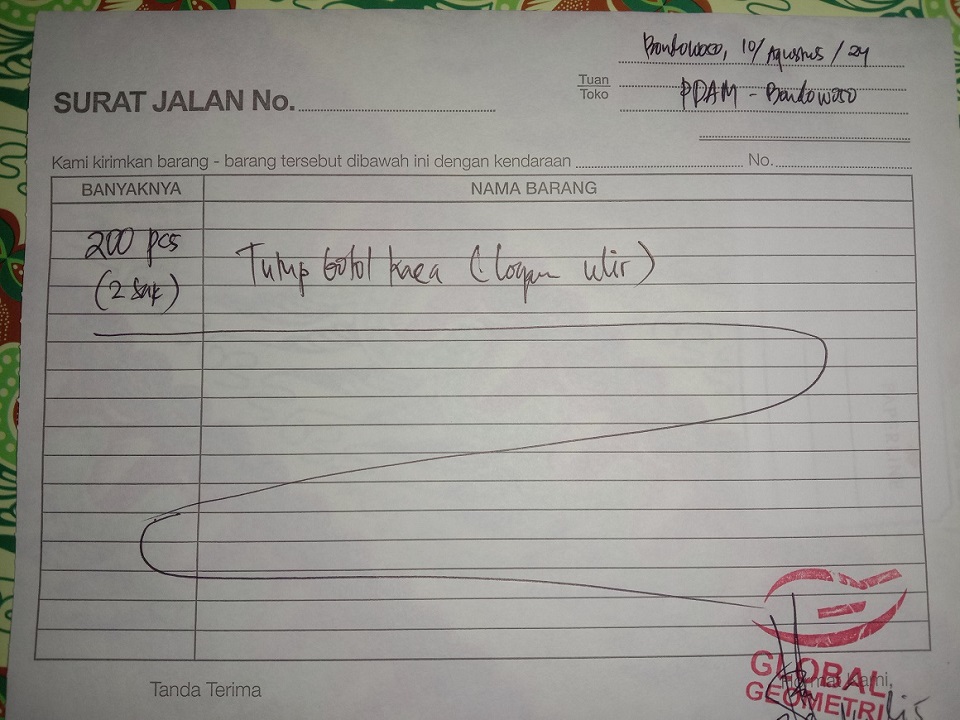 Bondowoso, 10/Agustus/24
Tuan
Toko
PDAM - Bondowoso
SURAT JALAN No.
Kami kirimkan barang - barang tersebut dibawah ini dengan kendaraan No.
BANYAKNYA NAMA BARANG
200 pcs Tutup botol kaca (logam ulir)
(2 sak)
Tanda Terima
Hormat Kami,
GLOBAL
GEOMETRI